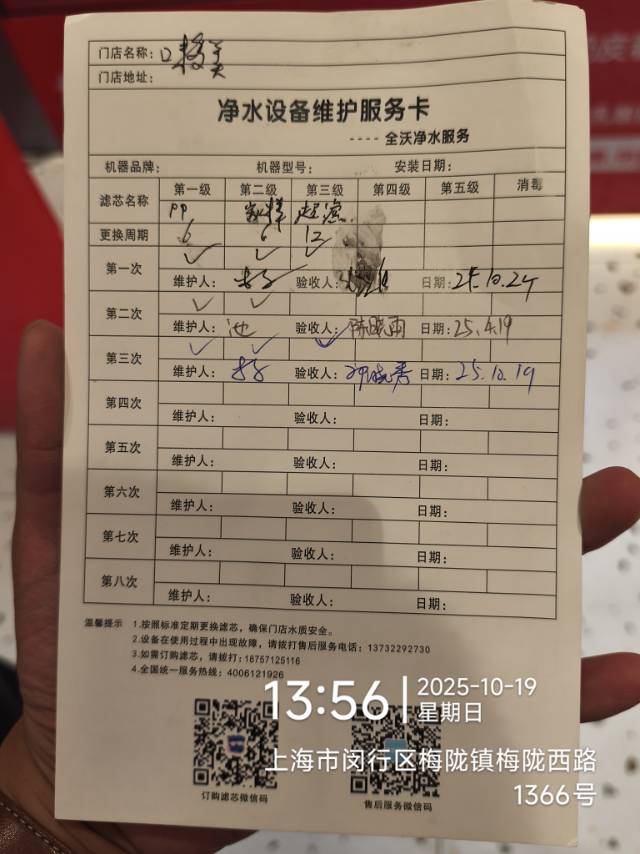 门店名称：
门店地址：
净水设备维护服务卡
---- 全沃净水服务
机器品牌： 机器型号： 安装日期：
滤芯名称 第一级 第二级 第三级 第四级 第五级 消毒
PP 超滤
更换周期 6 6 12
第一次 ✓ ✓ ✓
维护人： 验收人： 日期：24.10.24
第二次 ✓ ✓
维护人：池 验收人：陈晓雨 日期：25.4.19
第三次 ✓ ✓ ✓
维护人： 验收人： 日期：25.10.19
第四次
维护人： 验收人： 日期：
第五次
维护人： 验收人： 日期：
第六次
维护人： 验收人： 日期：
第七次
维护人： 验收人： 日期：
第八次
维护人： 验收人： 日期：
温馨提示 1.按照标准定期更换滤芯，确保门店水质安全。
2.设备在使用过程中出现故障，请拨打售后服务电话：13732292730
3.如需订购滤芯，请拨打：18757125116
4.全国统一服务热线：4006121926
订购滤芯微信码 售后服务微信码
13:56 2025-10-19
星期日
上海市闵行区梅陇镇梅陇西路
1366号